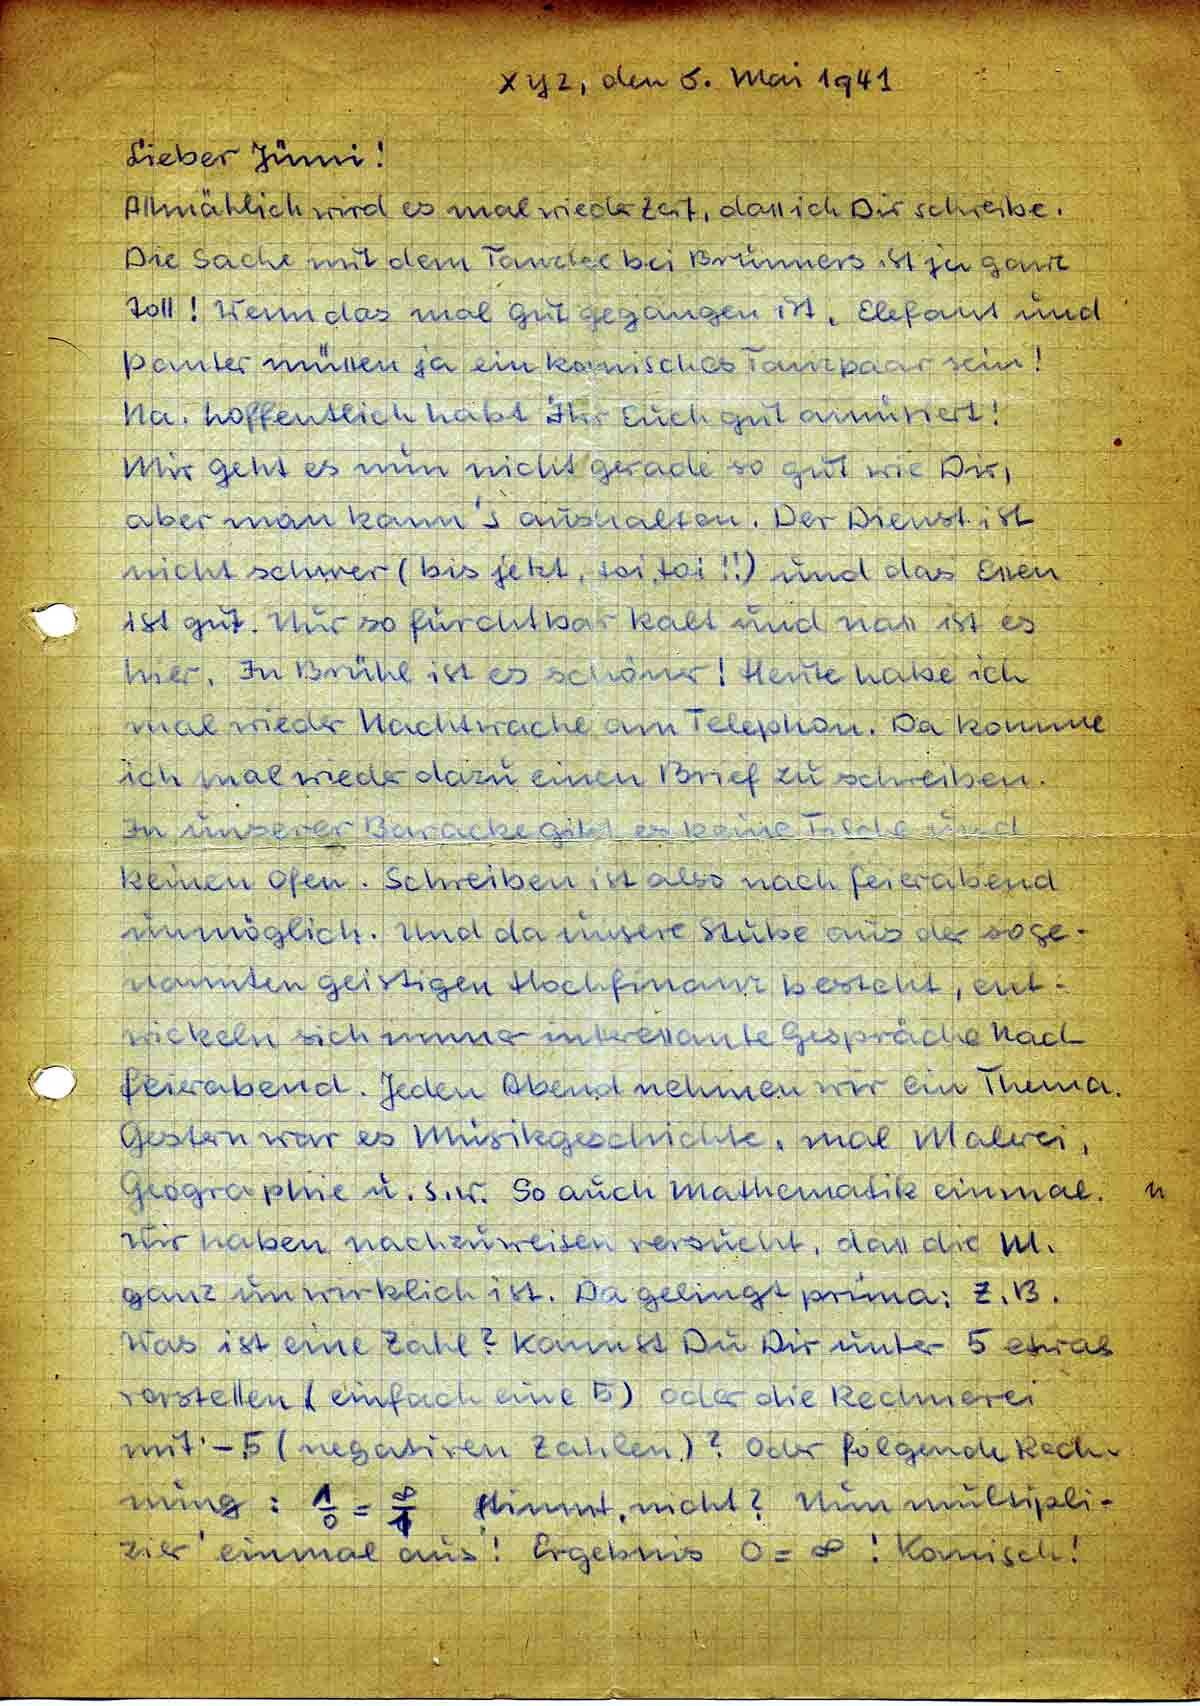 xyz, den 6. Mai 1941
Lieber Jümi!
Allmählich wird es mal wieder Zeit, dass ich Dir schreibe.
Die Sache mit dem Tanztee bei Brünners ist ja ganz
toll! Wenn das mal gut gegangen ist. Elefant und
Panter müssen ja ein komisches Tanzpaar sein!
Na. hoffentlich habt Ihr Euch gut amüsiert!
Mir geht es nun nicht gerade so gut wie Dir,
aber man kann's aushalten. Der Dienst ist
nicht schwer (bis jetzt, toi, toi!!) und das Essen
ist gut. Nur so furchtbar kalt und nass ist es
hier. In Brühl ist es schöner! Heute habe ich
mal wieder Nachtwache am Telephon. Da komme
ich mal wieder dazu einen Brief zu schreiben.
In unserer Baracke gibt es keine Tische und
keinen Ofen. Schreiben ist also nach Feierabend
unmöglich. Und da unsere Stube aus der soge-
nannten geistigen Hochfinanz besteht, ent-
wickeln sich immer interessante Gespräche nach
Feierabend. Jeden Abend nehmen wir ein Thema.
Gestern war es Musikgeschichte, mal Malerei,
Geographie u.s.w. So auch Mathematik einmal. n
Wir haben nachzuweisen versucht, dass die M.
ganz unwirklich ist. Da gelingt prima: Z.B.
Was ist eine Zahl? Kannst Du Dir unter 5 etwas
vorstellen (einfach eine 5) oder die Rechnerei
mit -5 (negativen Zahlen)? Oder folgende Rech-
nung: 1/0 = ∞/1 Stimmt, nicht? Nun multipli-
zier' einmal aus! Ergebnis 0 = ∞! Komisch!